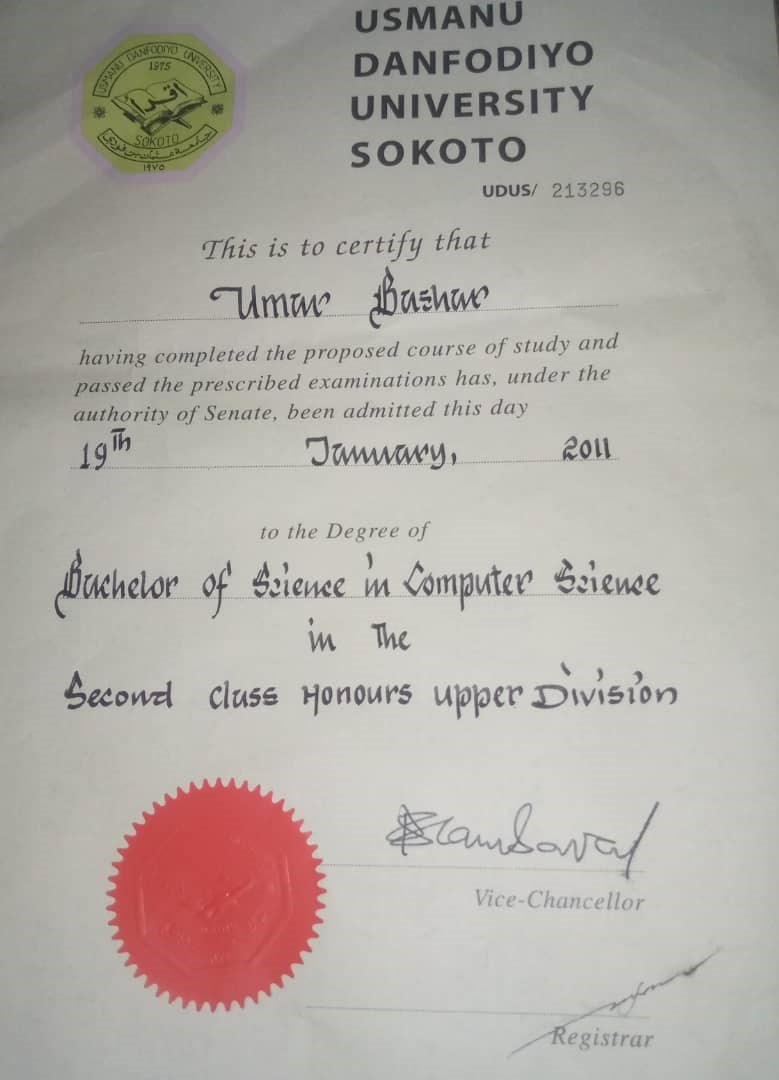 USMANU DANFODIYO UNIVERSITY
1975
اقرأ
SOKOTO
١٩٧٥
USMANU
DANFODIYO
UNIVERSITY
SOKOTO
UDUS/ 213296
This is to certify that
Umar Bashar
having completed the proposed course of study and
passed the prescribed examinations has, under the
authority of Senate, been admitted this day
19Th January, 2011
to the Degree of
Bachelor of Science in Computer Science
in The
Second Class Honours Upper Division
Vice-Chancellor
Registrar